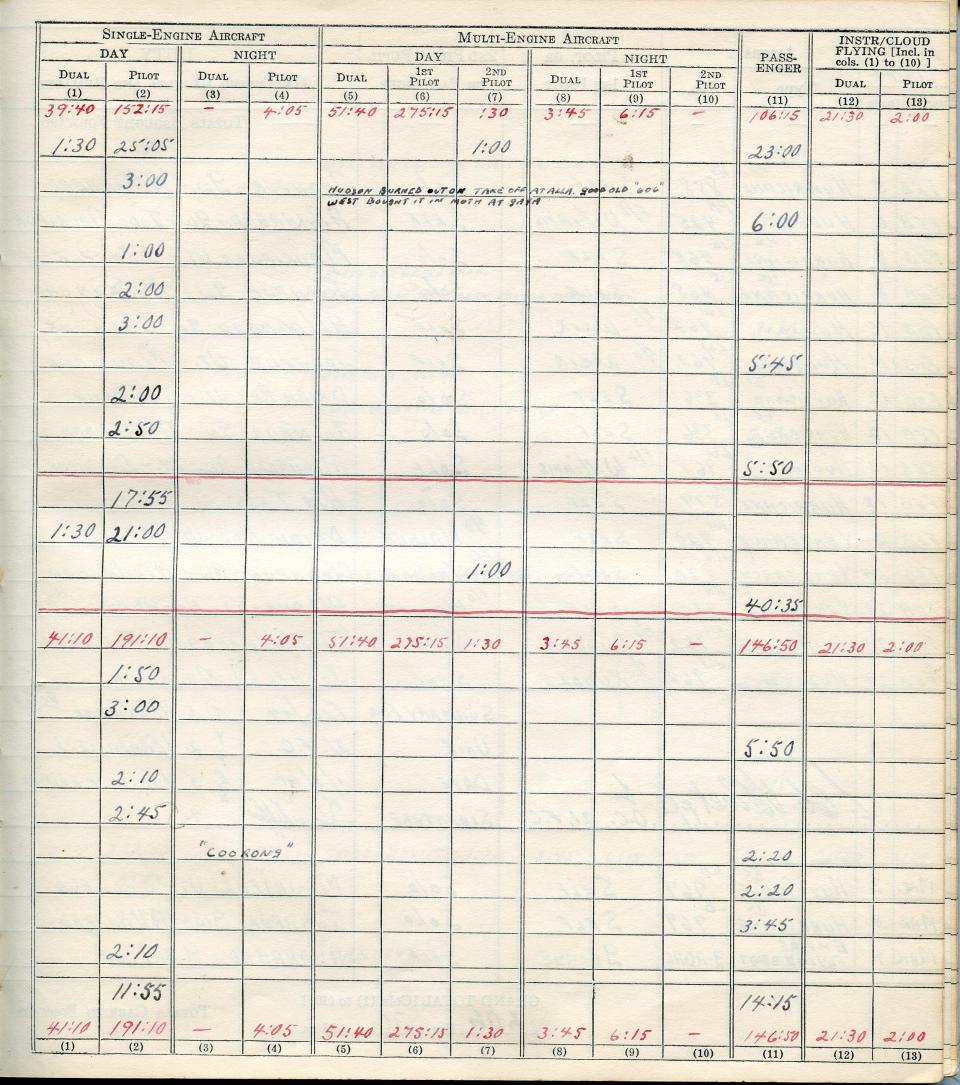 SINGLE-ENGINE AIRCRAFT MULTI-ENGINE AIRCRAFT PASS-ENGER INSTR/CLOUD FLYING [Incl. in cols. (1) to (10) ]
DAY NIGHT DAY NIGHT
DUAL PILOT DUAL PILOT DUAL 1ST PILOT 2ND PILOT DUAL 1ST PILOT 2ND PILOT DUAL PILOT
(1) (2) (3) (4) (5) (6) (7) (8) (9) (10) (11) (12) (13)
39:40 152:15 - 4:05 51:40 275:15 :30 3:45 6:15 - 106:15 21:30 2:00
1:30 25:05 1:00 23:00
3:00
HUDSON BURNED OUT ON TAKE OFF AT ALLA. GOOD OLD "606"
WEST BOUGHT IT IN MOTH AT GAYA
6:00
1:00
2:00
3:00
5:45
2:00
2:50
5:50
17:55
1:30 21:00
1:00
40:35
41:10 191:10 - 4:05 51:40 275:15 1:30 3:45 6:15 - 146:50 21:30 2:00
1:50
3:00
5:50
2:10
2:45
"COORONG" 2:20
2:20
3:45
2:10
11:55 14:15
41:10 191:10 - 4:05 51:40 275:15 1:30 3:45 6:15 - 146:50 21:30 2:00
(1) (2) (3) (4) (5) (6) (7) (8) (9) (10) (11) (12) (13)